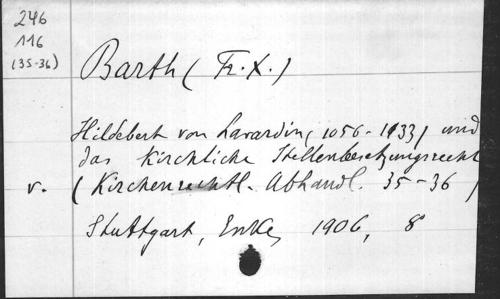 246
116
(35-36)
Barth (Fr. X.)
Hildebert von Lavardin (1056-1133) und
das kirchliche Stellenbesetzungsrecht
v. (Kirchenrechtl. Abhandl. 35-36)
Stuttgart, Enke, 1906, 8°